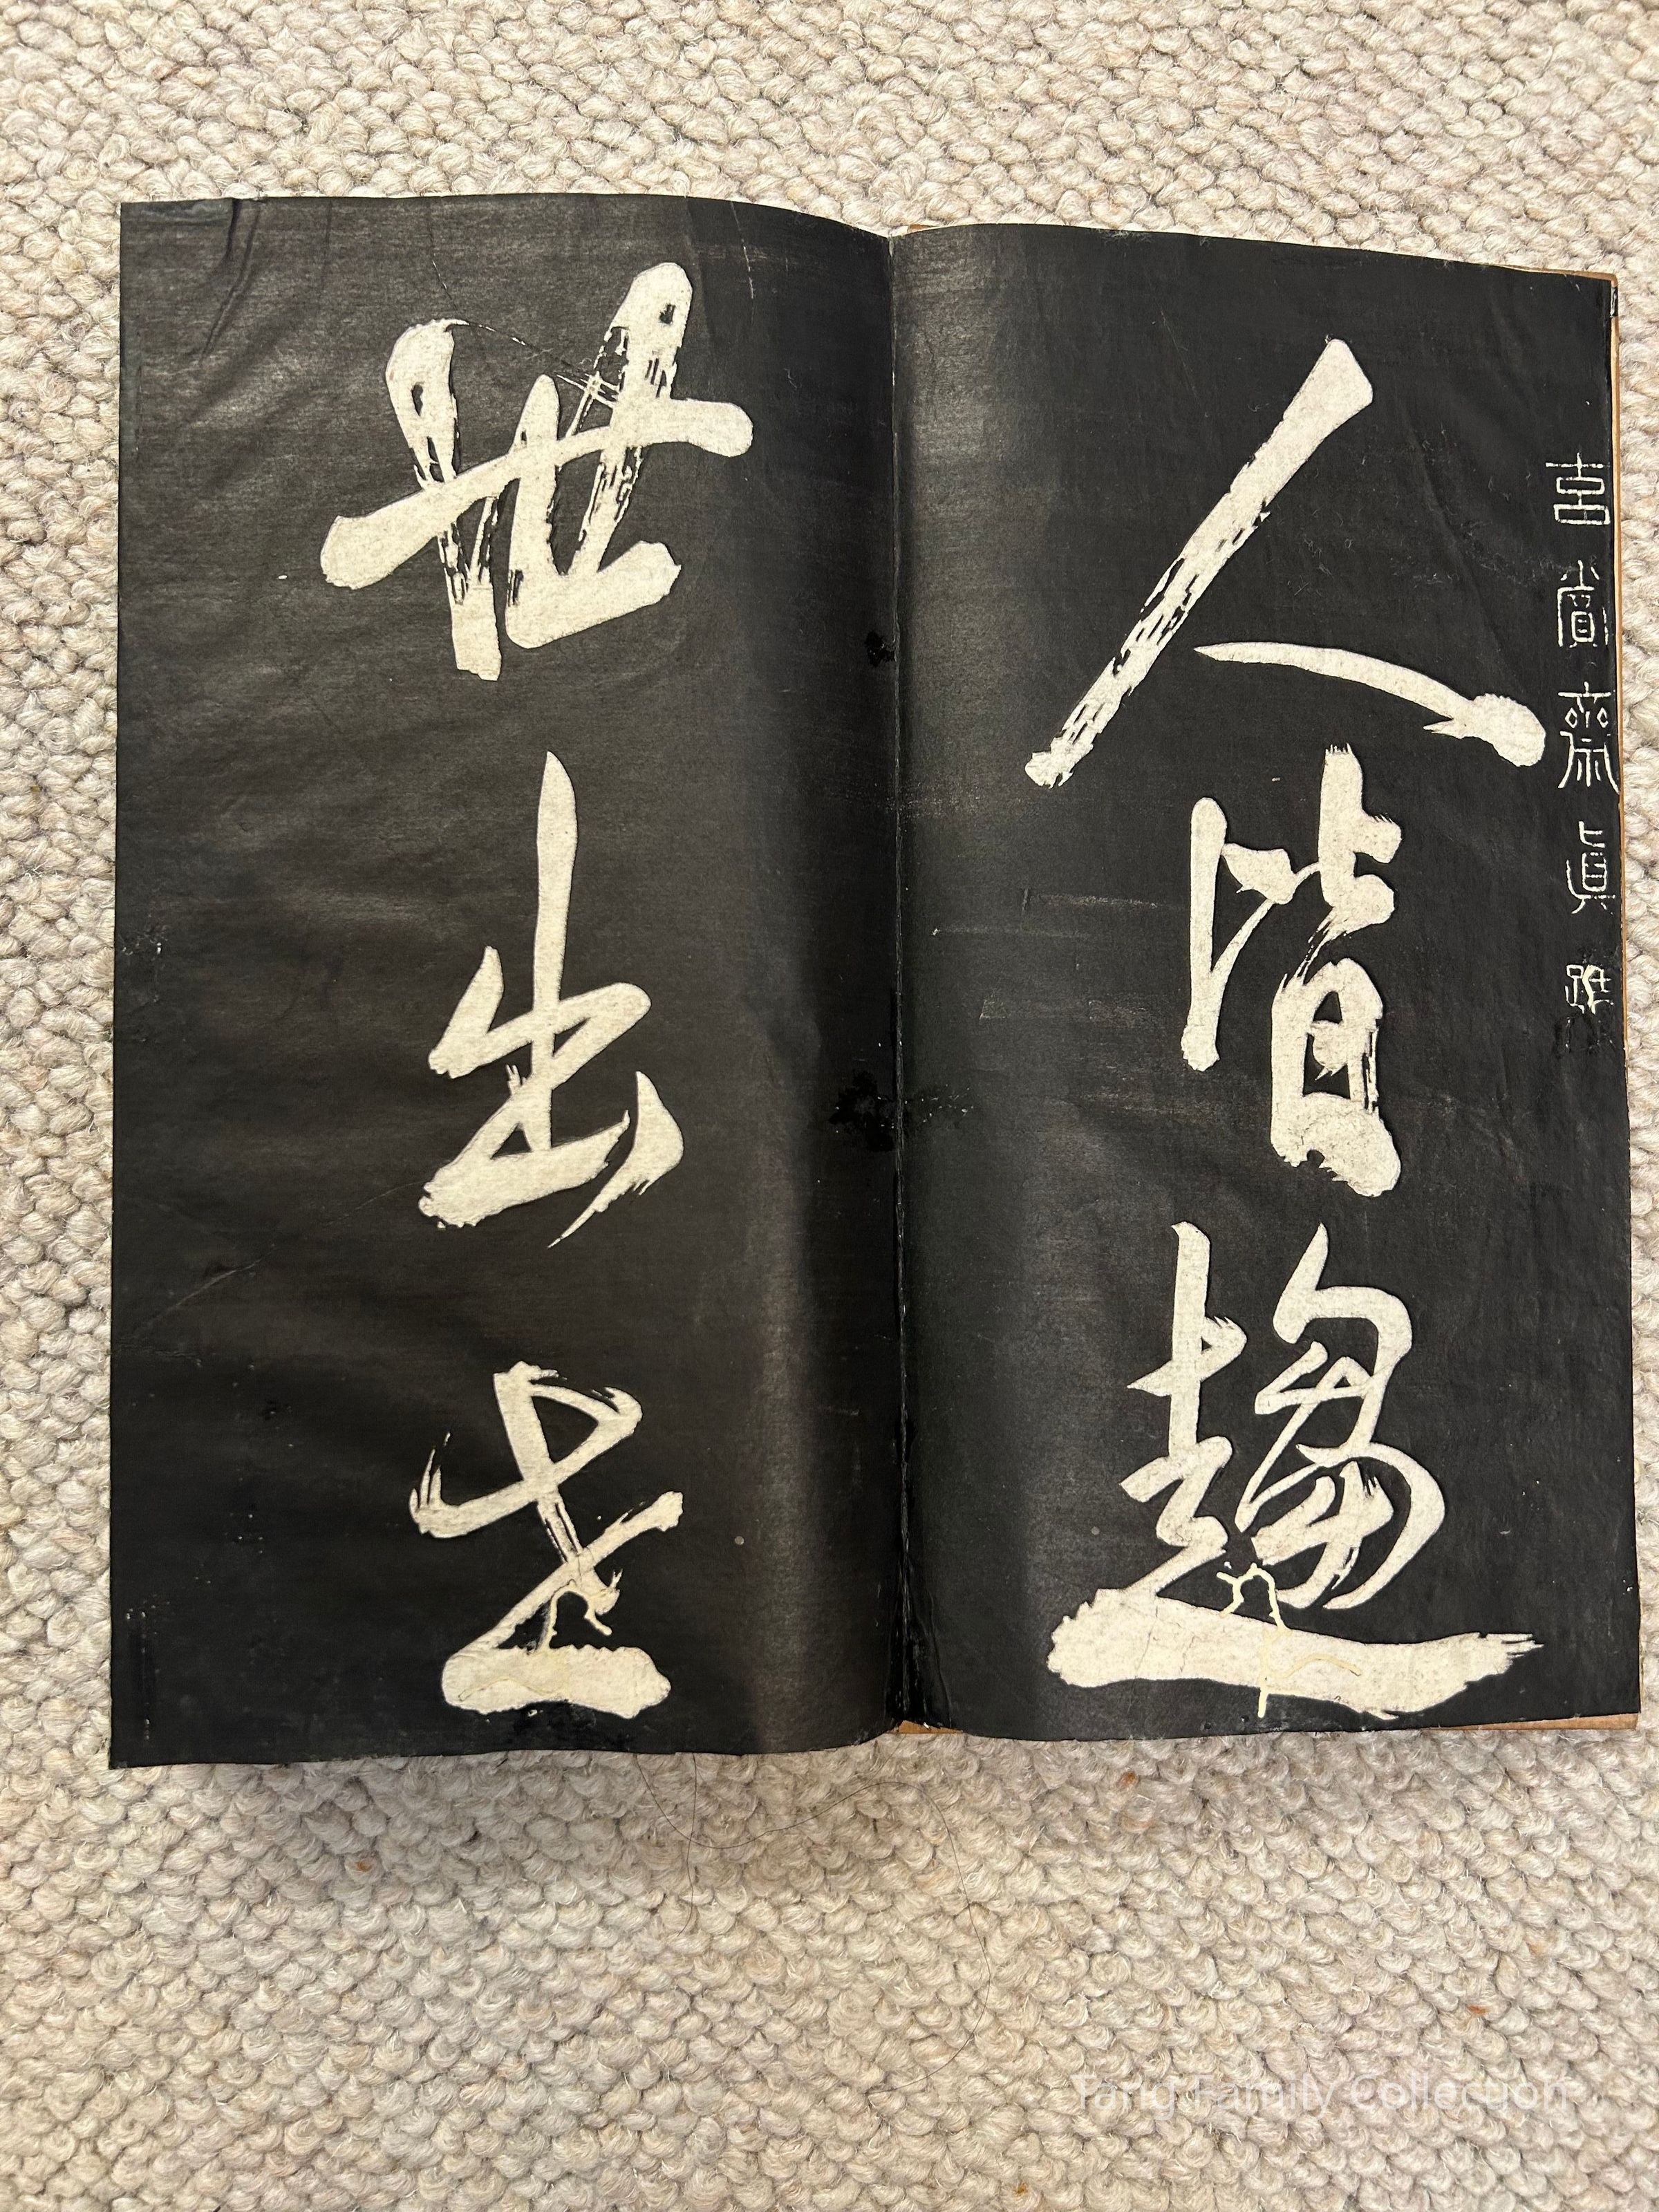 賞齋真蹟
人皆趨
世出者
Tang Family Collection